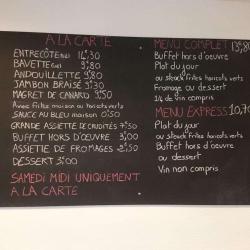 A LA CARTE
ENTRECÔTE 14,30
BAVETTE 9,80
ANDOUILLETTE 9,80
JAMBON BRAISÉ 9,30
MAGRET DE CANARD 9,50
Avec frites maison ou haricots verts
SAUCE AU BLEU maison 0,50
GRANDE ASSIETTE DE CRUDITÉS 7,50
BUFFET HORS D'ŒUVRE 3,00
ASSIETTE DE FROMAGES 2,50
DESSERT 3,00
SAMEDI MIDI UNIQUEMENT
A LA CARTE
MENU COMPLET 13,80
Buffet hors d'œuvre
Plat du jour
ou steack frites haricots verts
Fromage ou dessert
1/4 de vin compris
MENU EXPRESS 10,70
Plat du jour
ou steack frites haricots verts
Buffet hors d'œuvre
ou dessert
Vin non compris